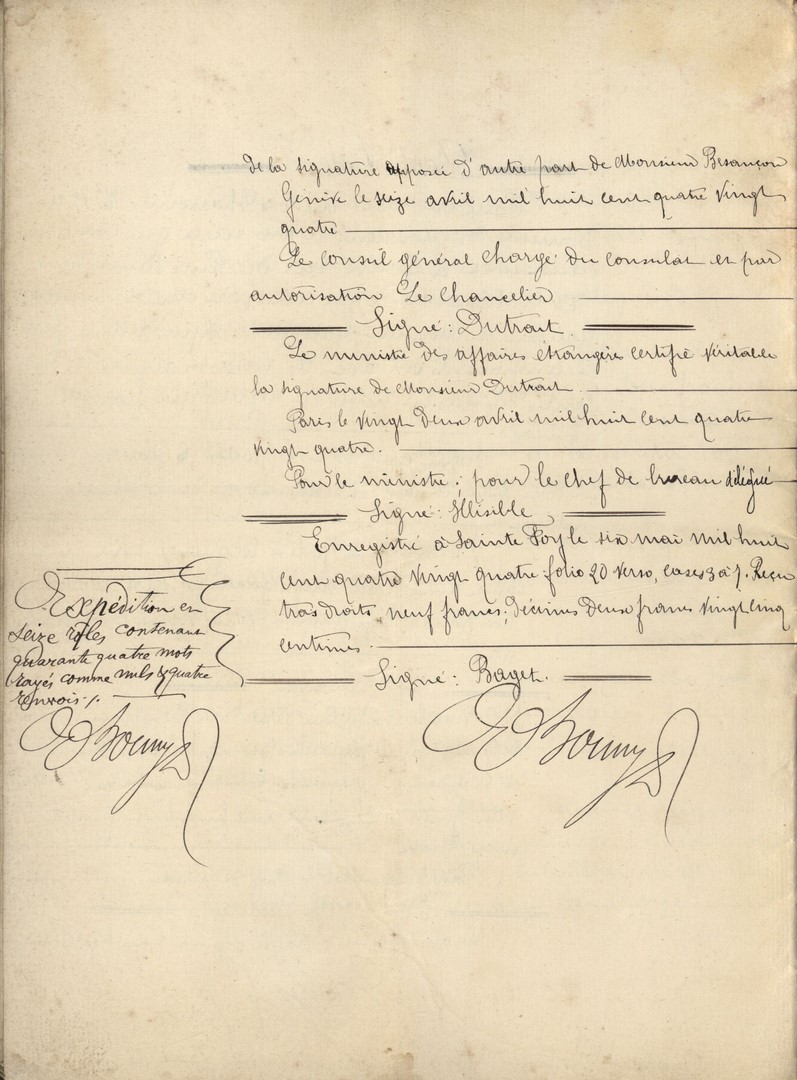 de la signature apposée d'autre part de Monsieur Besançon
Genève le seize avril mil huit cent quatre vingt
quatre
Le consul général chargé du consulat et par
autorisation Le Chancelier
Signé: Dutrait.
Le ministre des affaires étrangères certifie véritable
la signature de Monsieur Dutrait.
Paris le vingt deux avril mil huit cent quatre
vingt quatre.
Pour le ministre; pour le chef de bureau délégué
Signé: Illisible
Enregistré à Sainte Foy le six mai mil huit
cent quatre vingt quatre folio 20 verso, cases 3 à 7. Reçu
trois droits, neuf francs; décimes deux francs vingt cinq
centimes.
Signé: Baget.
Expédition en
seize rôles contenant
quarante quatre mots
rayés comme nuls & quatre
renvois ./.